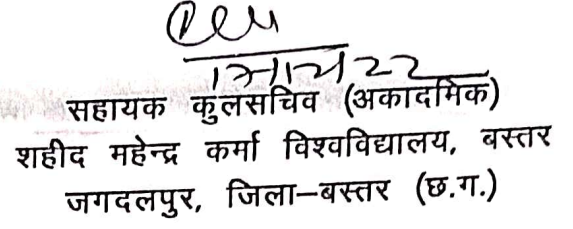 सहायक कुलसचिव (अकादमिक)
शहीद महेन्द्र कर्मा विश्वविद्यालय, बस्तर
जगदलपुर, जिला–बस्तर (छ.ग.)